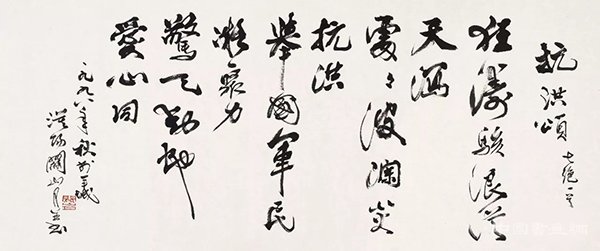 抗洪頌 七絕一首
狂濤駭浪從
天瀉
處々波瀾
抗洪
舉國軍民
凝聚力
驚天動地
愛心同
一九九八年秋於羊城
漠陽關山月並書